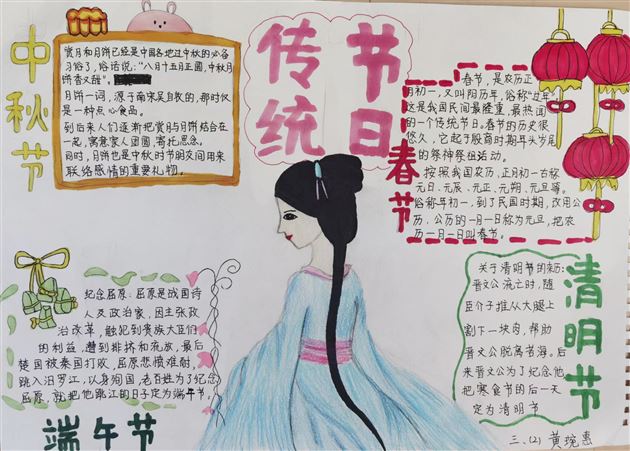 传统
节日
中秋节
赏月和月饼已经是中国各地过中秋的必备
习俗了，俗话说："八月十五月正圆，中秋月
饼香又甜"。
月饼一词，源于南宋吴自牧的，那时仅
是一种点心食品。
到后来人们逐渐把赏月与月饼结合在
一起，寓意家人团圆，寄托思念。
同时，月饼也是中秋时节朋友间用来
联络感情的重要礼物。
春节
春节，是农历正
月初一，又叫阴历年，俗称"过年"
这是我国民间最隆重、最热闹
的一个传统节日。春节的历史很
悠久，它起于殷商时期年头岁尾
的祭神祭祖活动。
按照我国农历，正月初一古称
元日、元辰、元正、元朔、元旦等。
俗称年初一，到了民国时期，改用公
历，公历的一月一日称为元旦，把农
历一月一日叫春节。
纪念屈原：屈原是战国诗
人及政治家，因主张政
治改革，触犯到贵族大臣们
的利益，遭到排挤和流放，最后
楚国被秦国打败，屈原悲愤难耐，
跳入汨罗江，以身殉国，老百姓为了纪念
屈原，就把他跳江的日子定为端午节。
端午节
关于清明节的来历：
晋文公流亡时，随
臣介子推从大腿上
割下一块肉，帮助
晋文公脱离苦海。后
来晋文公为了纪念他
把寒食节的后一天
定为清明节
清明节
三、(2) 黄琬惠